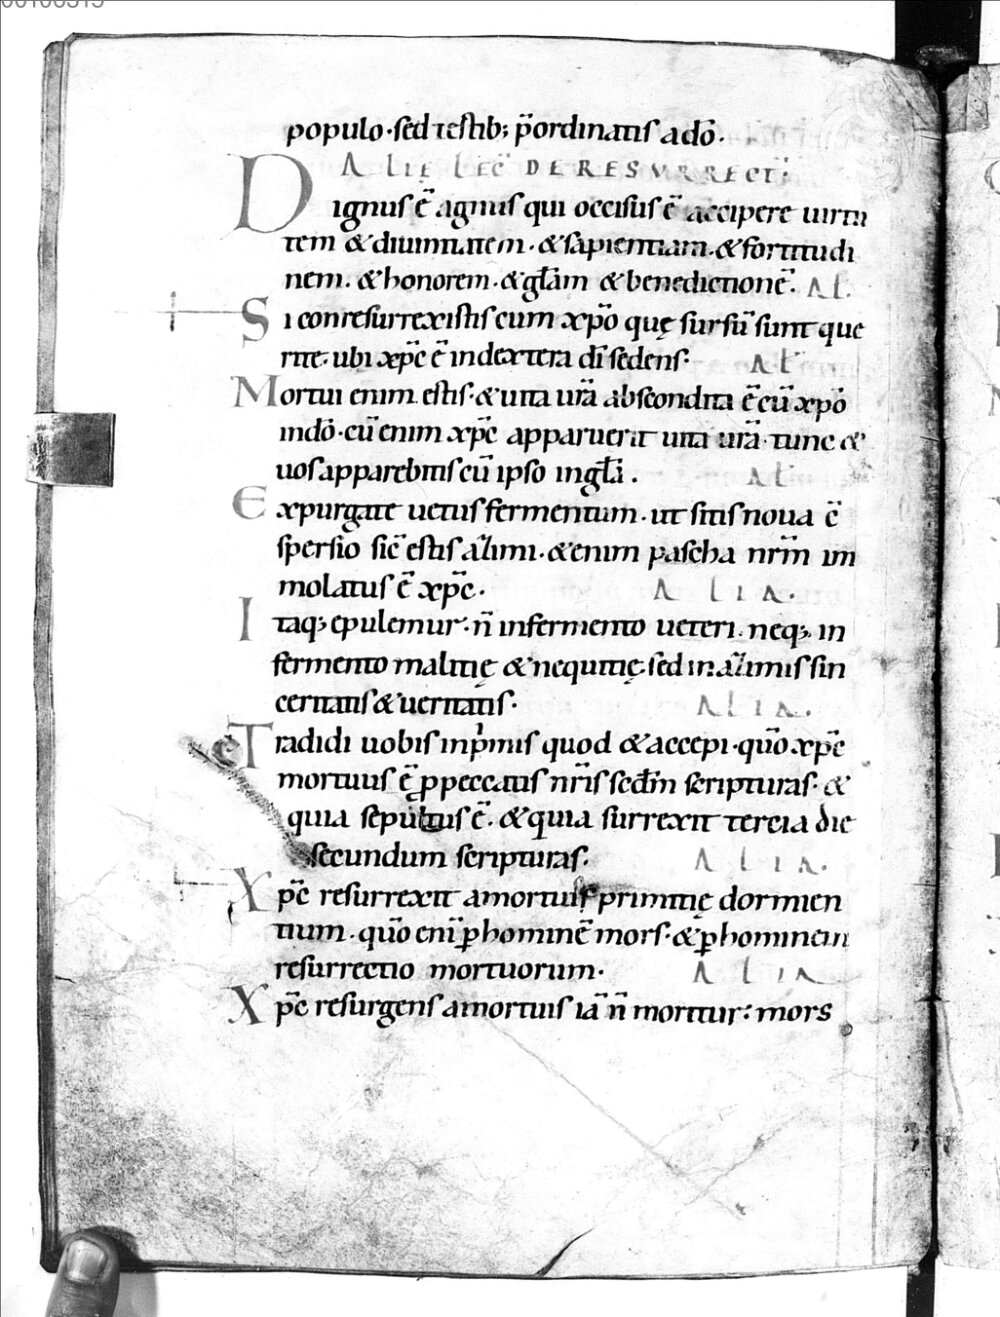 populo·sed testib; p̄ordinatis a dō.
ALIE LEC̄ DE RESURRECT:
Dignus ē agnus qui occisus ē accipere uirtu
tem & diuinitatem·& sapientiam·& fortitudi
nem·& honorem·& gl̄am & benedictionē. AL̄.
Si conresurrexistis cum xp̄o quę sursū sunt que
rite· ubi xp̄c ē in dextera dī sedens· AL̄
Mortui enim estis·& uita ur̄a abscondita ē cū xp̄o
in dō·cū enim xp̄c apparuerit uita ur̄a·tunc &
uos apparebitis cū ipso in gl̄a. AL̄
Expurgate uetus fermentum·ut sitis noua c̄
spersio sic̄ estis aȷ̄imi·& enim pascha nr̄m im
molatus ē xp̄c· ALIA.
Itaq; epulemur·n̄ in fermento ueteri·neq; in
fermento malitię & nequitię·sed in aȷ̄imis sin
ceritatis & ueritatis· ALIA.
Tradidi uobis inp̄mis quod & accepi·quō xp̄c
mortuus ē ꝑ peccatis nr̄is scd̄m scripturas·&
quia sepultus ē·& quia surrexit tercia die
secundum scripturas: ALIA.
Xp̄c resurrexit a mortuis primitię dormien
tium·quō enī ꝑ hominē mors·& ꝑ hominem
resurrectio mortuorum· ALIA
Xp̄c resurgens a mortuis iā n̄ moritur: mors